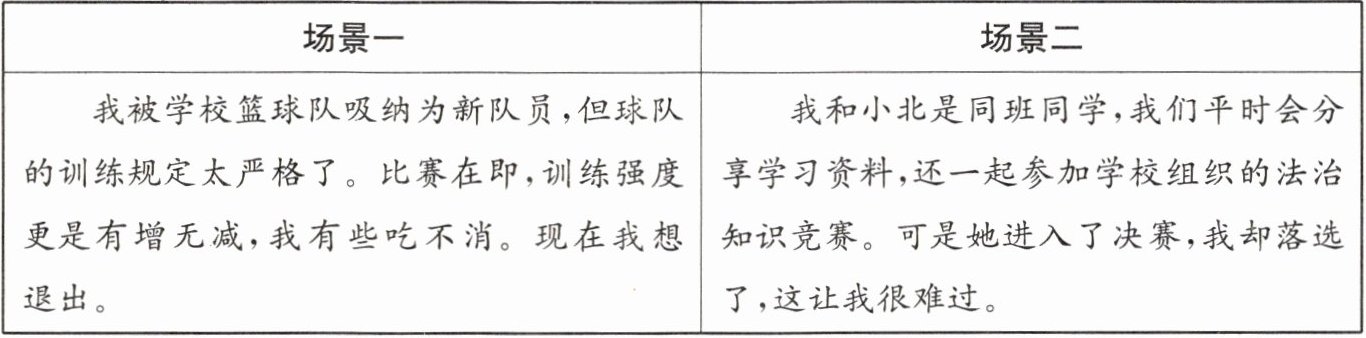 场景一
场景二
我被学校篮球队吸纳为新队员,但球队
的训练规定太严格了。比赛在即,训练强度
更是有增无减,我有些吃不消。现在我想
退出。
我和小北是同班同学,我们平时会分
享学习资料,还一起参加学校组织的法治
知识竞赛。可是她进入了决赛,我却落选
了,这让我很难过。